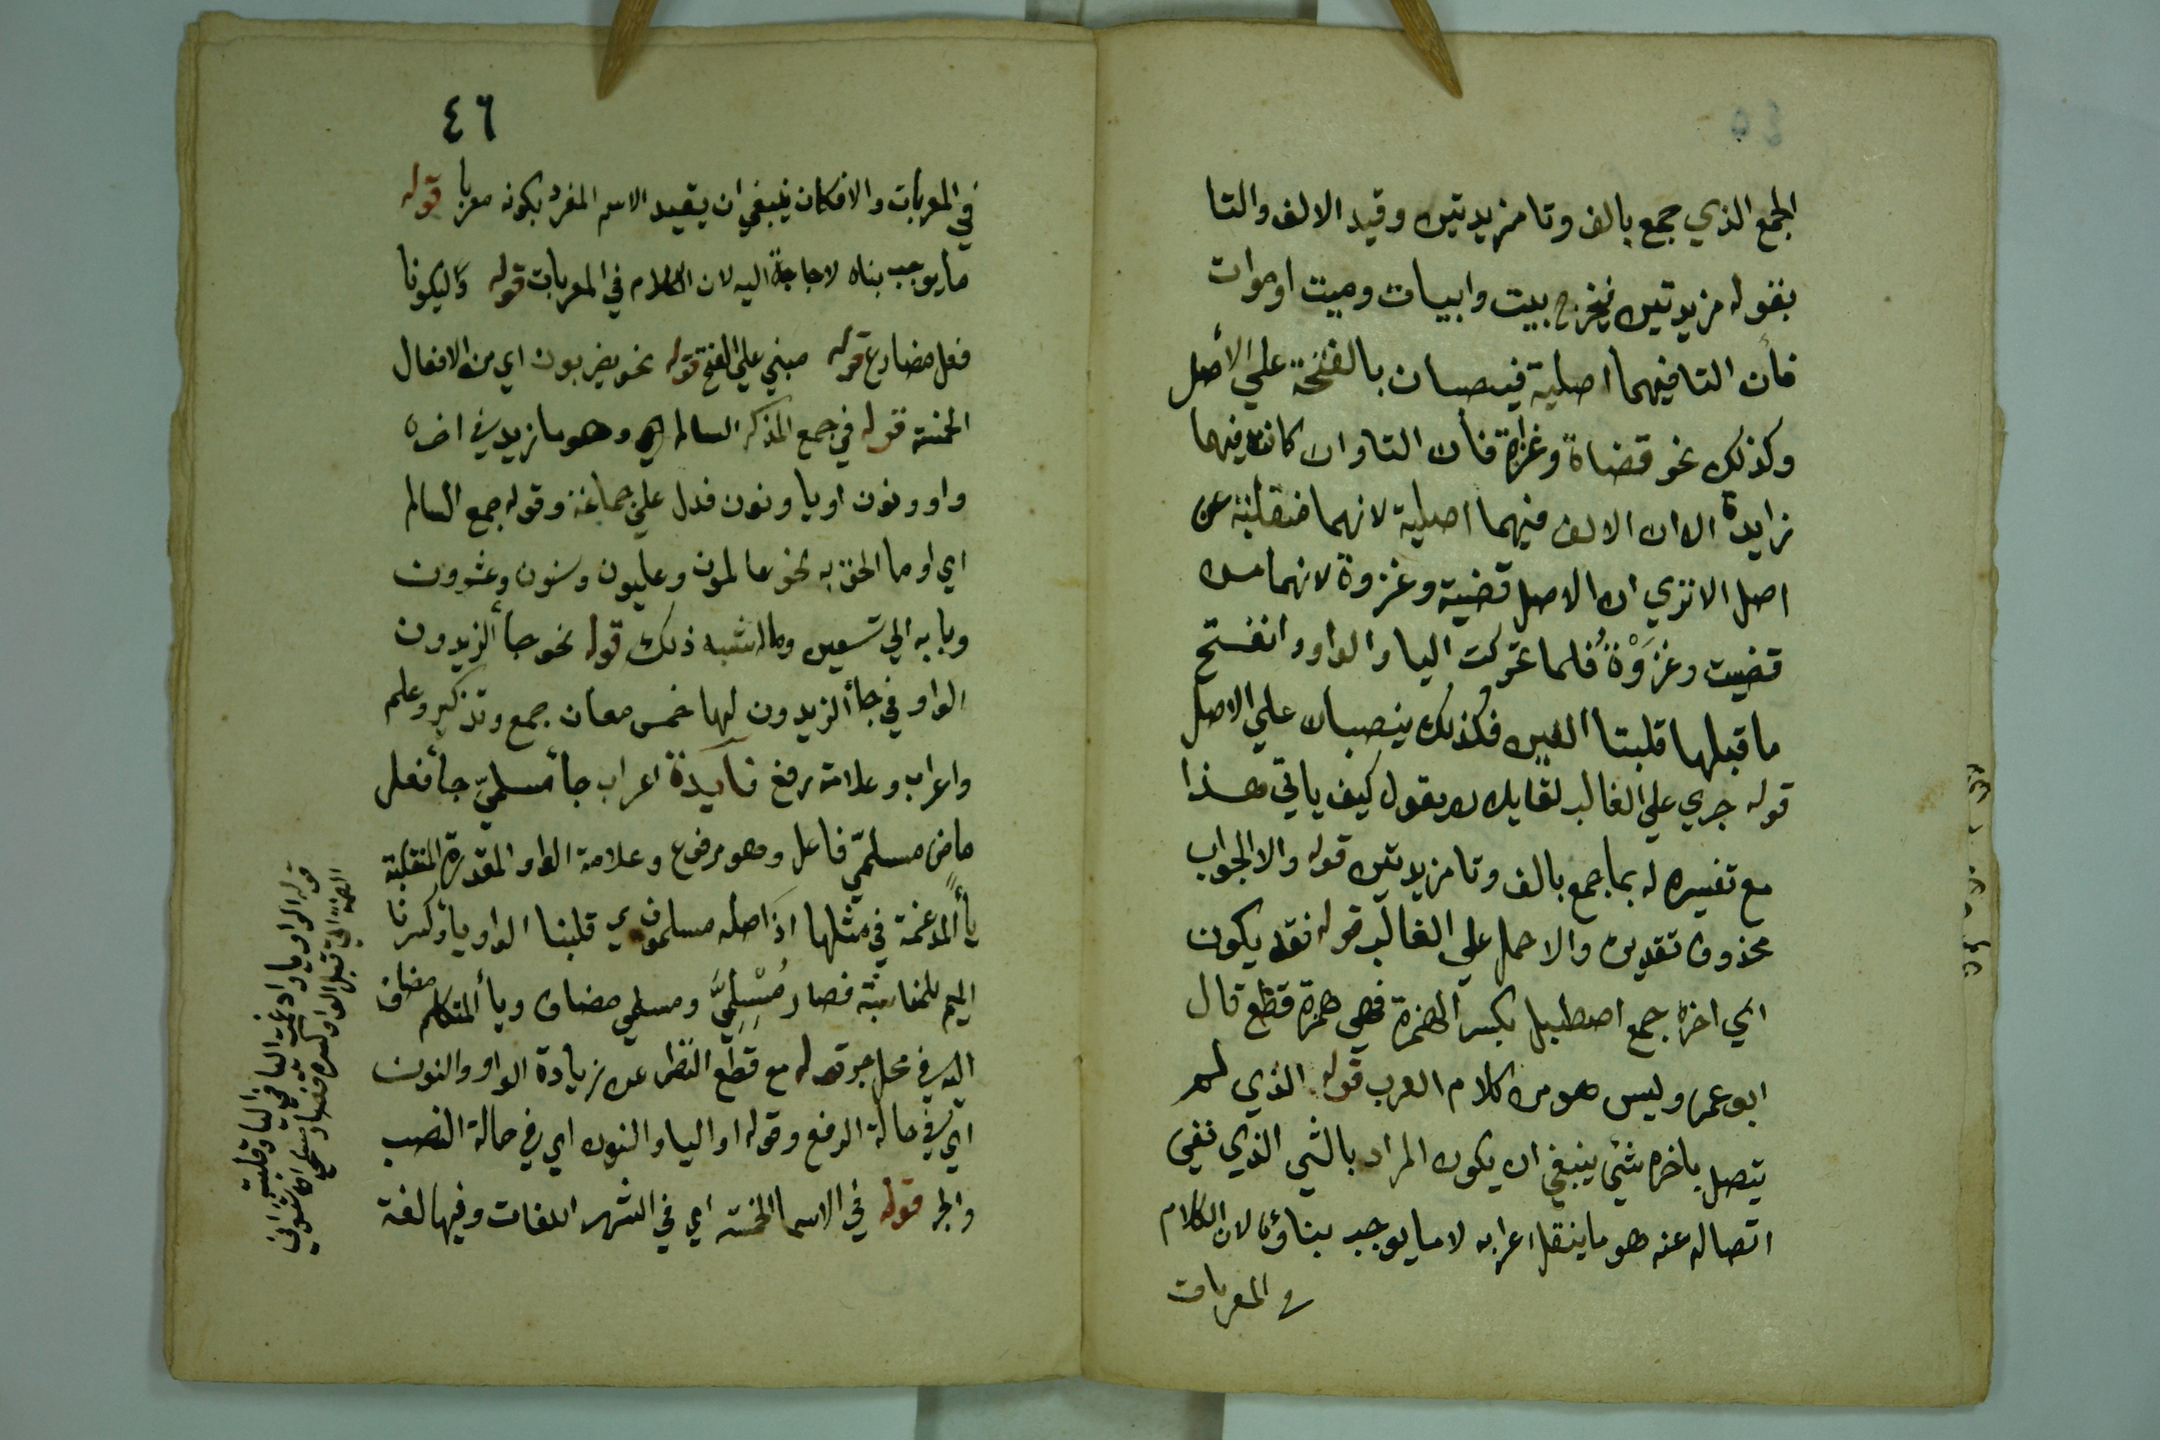 الجمع الذي جمع بالف وتا مزيدتين وقيد الالف والتا
بقوله مزيدتين ليخرج بيت وابيات وميت واموات
فأن التا فيهما اصلية فينصبان بالفتحة علي الأصل
وكذلك نحو قضاة وغزاة فأن التا وان كانت فيهما
زايدة الا ان الالف فيهما اصلية لانهما منقلبة عن
اصل الا تري ان الاصل قضية وغزوة لانهما من
قضيت وغزَوْة فلما تحركت اليا والواو وانفتح
ما قبلها قلبتا الفين فكذلك ينصبان علي الاصل
قوله جري علي الغالب لقايل ان يقول كيف ياتي هذا
مع تفسيره له بما جمع بالف وتا مزيدتين قوله والا الجواب
محذوف تقديره والا حمل علي الغالب قوله فقد يكون
اي اخره جمع اصطبل بكسر الهمزة فهي همزة قطع قال
ابو عمر وليس هو من كلام العرب قوله الذي لم
يتصل باخره شئ ينبغي ان يكون المراد بالشي الذي نفي
اتصاله عنه هو ما ينقل اعرابه لا ما يوجب بناؤه لان الكلام
في المعربات
٤٦
في المعربات والا فكان ينبغي ان يقيد الاسم المفرد بكونه معربا قوله
ما يوجب بناه لا حاجة اليه لان الكلام في المعربات قوله وليكونا
فعل مضارع قوله مبني علي الفتح قوله نحو يضربون اي من الافعال
الخمسة قوله في جمع المذكر السالم وهو ما زيد في اخره
واو ونون او يا ونون فدل علي جماعة وقوله جمع السالم
اي او ما الحق به نحو عالمون وعليون وسنون وعشرون
وبابه الي تسعين وما اشبه ذلك قوله نحو جأ الزيدون
الواو في جأ الزيدون لها خمس معان جمع وتذكير وعلم
واعراب وعلامة رفع فايدة اعراب جأ مسلميّ جأ فعل
ماض مسلميّ فاعل وهو مرفوع وعلامة الواو المقدرة المنقلبة
يأ المدغمة في مثلها اذ اصله مسلموي قلبنا الواو يأ وكسرنا
الميم للمناسبة فصار مُسْلِمِيَّ ومسلمي مضاف ويأ المتكلم مضاف
اليه في محل جر قوله مع قطع النظر عن زيادة الواو والنون
اي في حالة الرفع وقوله او اليا والنون اي في حالة النصب
والجر قوله في الاسما الخمسة اي في اشهر اللغات وفيها لغة
قوله الواو يا وادغمت اليا في اليا وقلبت
الضمة التي قبل الواو كسرة فصار